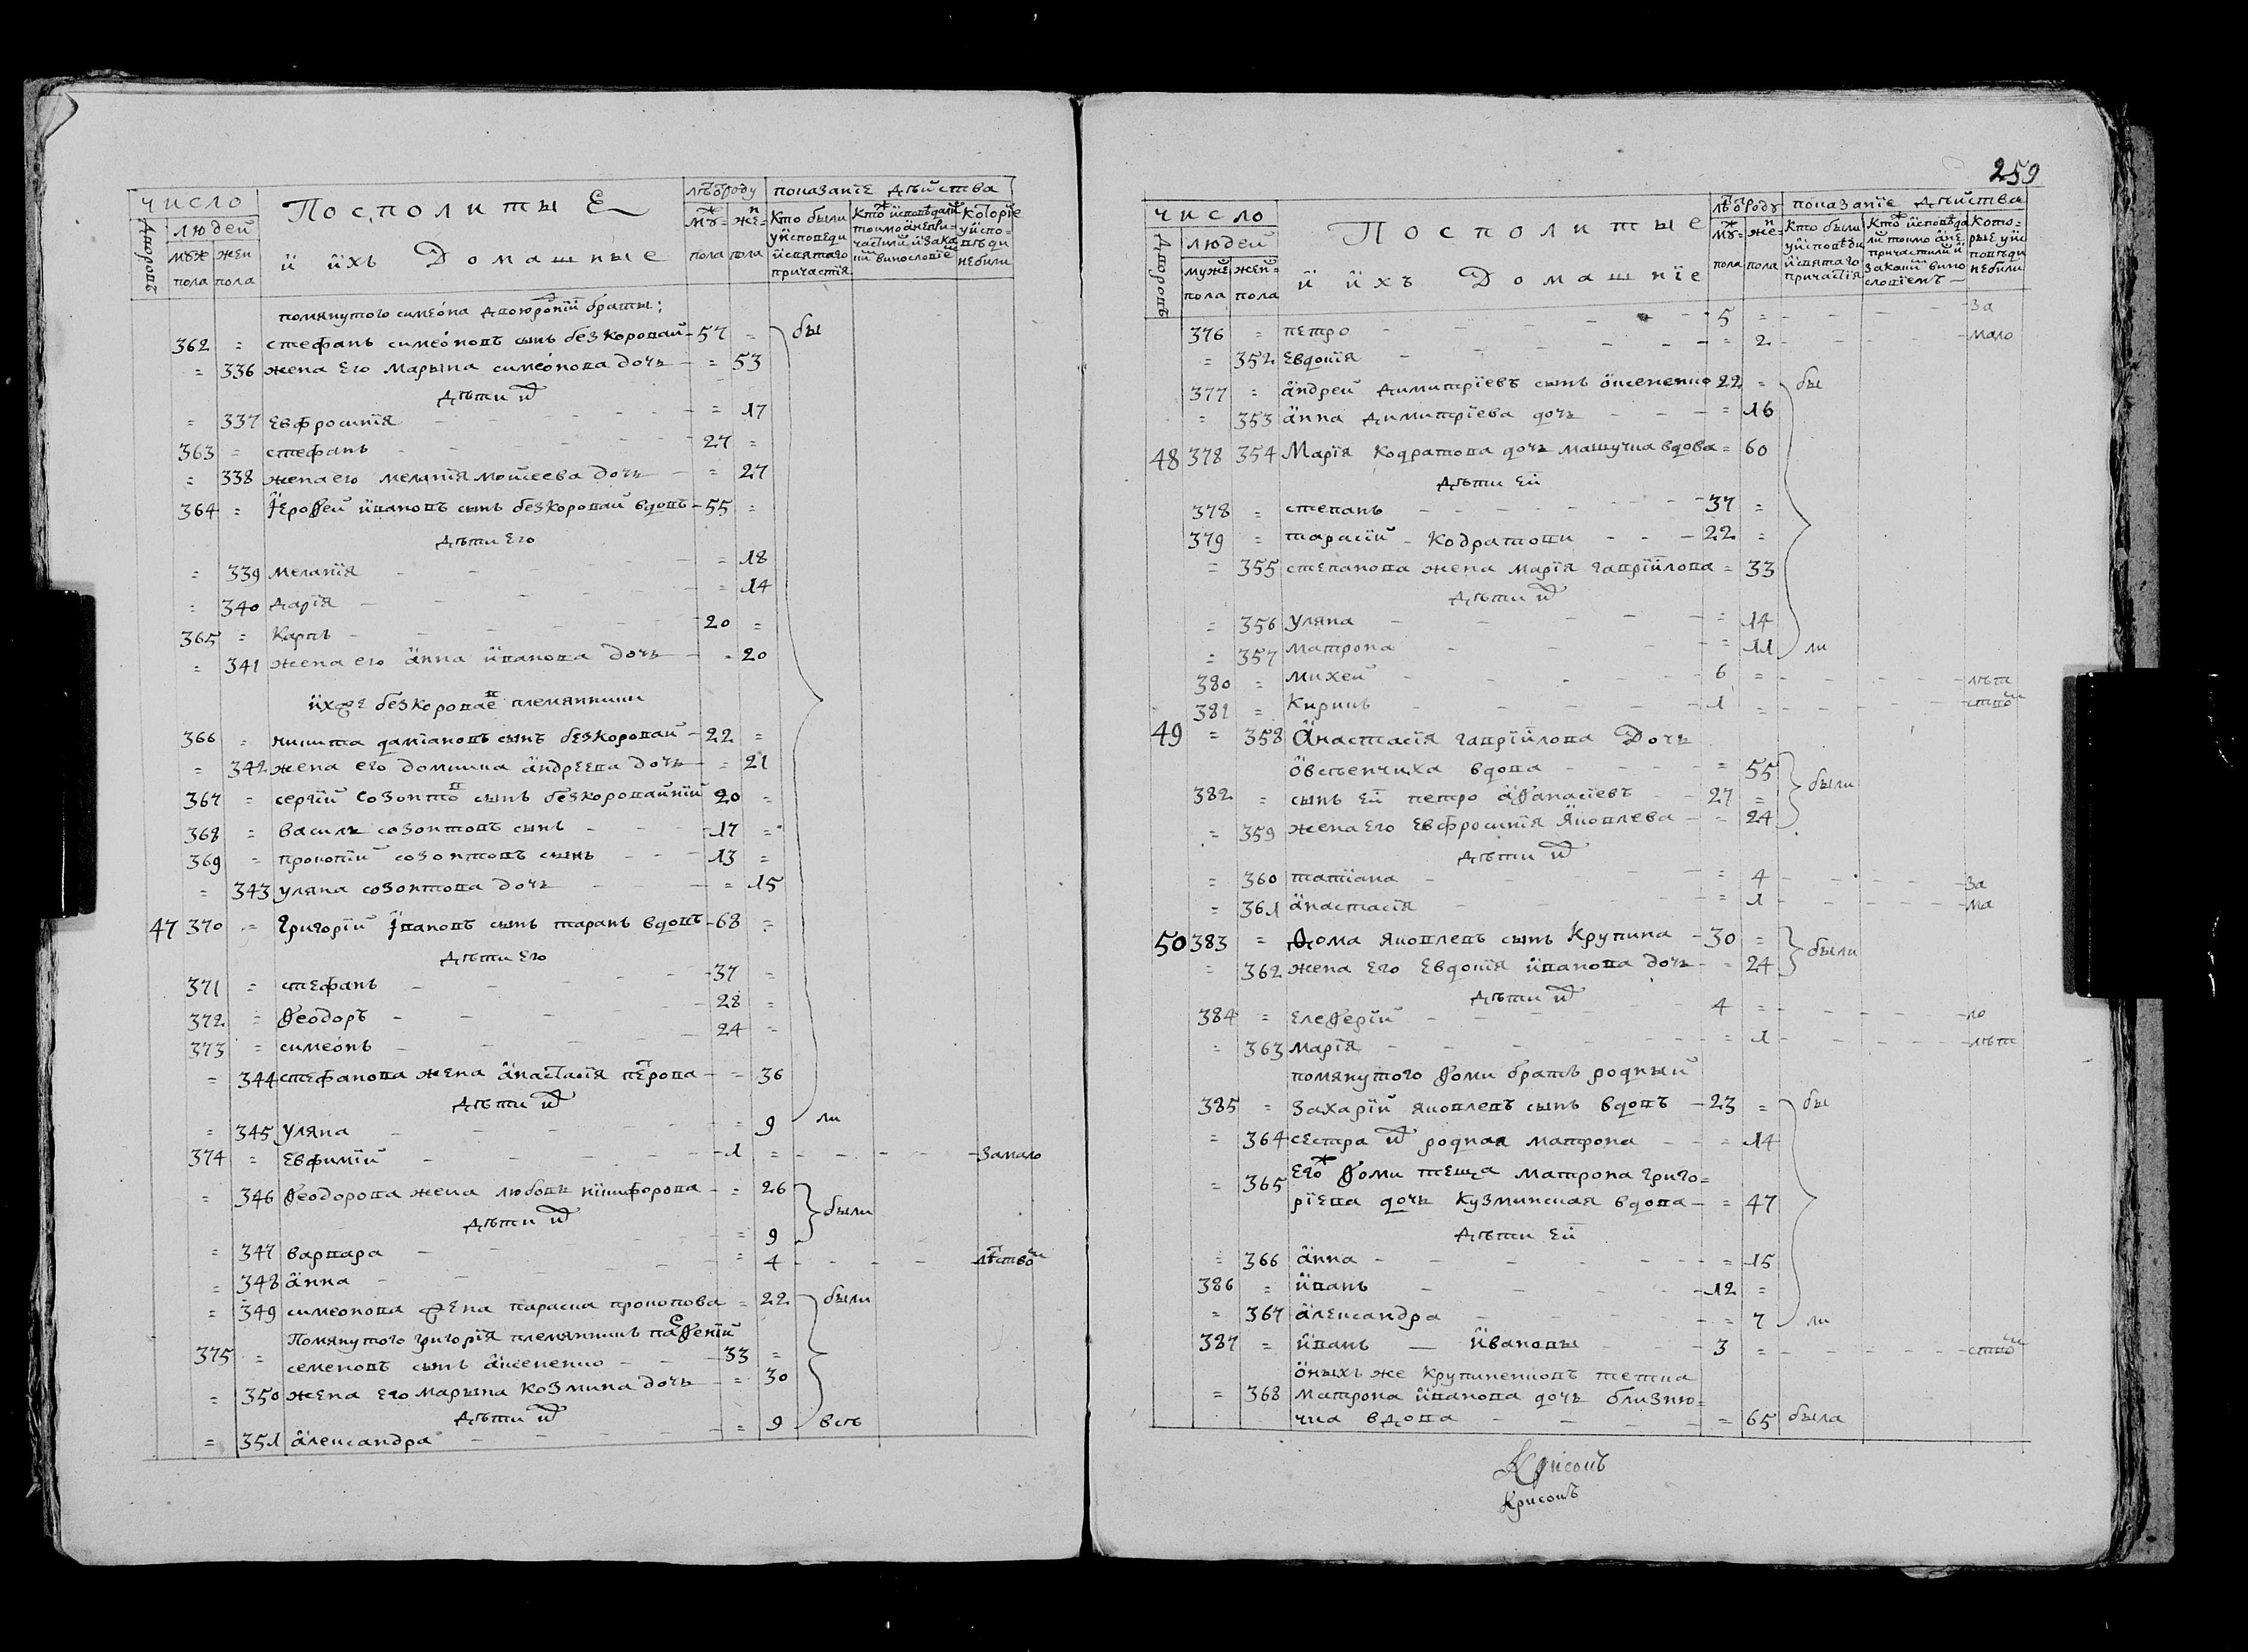 число
людей
дворовъ
муж пола
жен пола
Посполитые
и ихъ Домашные
лѣтъ отъ роду
муж= пола
жен= пола
показанїе дѣйства
Кто были у исповеди и святаго причастїя
Которїе у исповѣди не были
помянутого симеона двоюроднїи браты:
362 = стефанъ симеоновъ сынъ безкоровай - 57 = бы
= 336 жена Его марына симеонова дочь - = 53
Дѣти их
= 337 Евфросинїя = 17
363 = стефанъ 27 =
= 338 жена его меланїя моисеева дочь - = 27
364 = Їерофей ивановъ сынъ безкоровай вдовъ - 55 =
дѣти Его
= 339 меланїя = 18
= 340 дарїя = 14
365 = Карпъ 20 =
= 341 жена его анна иванова дочь - = 20
ихже безкороваевъ племянники
366 = никита дамїановъ сынъ безкоровай - 22 =
= 342 жена его домникa андреева дочь - = 21
367 = сергїй созонтовъ сынъ безкоровайнїй 20 =
368 = василь созонтовъ сынъ - 17 =
369 = прокопїй созонтовъ сынъ - 13 =
= 343 уляна созонтова дочь - = 15
47 370 = Григорїй Їпановъ сынъ таранъ вдовъ - 68 =
Дѣти Его
371 = стефанъ - 37 =
372 = Ѳеодоръ - 28 =
373 = симеонъ - 24 =
= 344 стефанова жена анастасїя петрова - = 36
Дѣти их
= 345 уляна = 9 ли
374 = Евфимїй - 1 = замало
= 346 Ѳеодорова жена любовь никифорова - = 26 были
дѣти их
= 347 варвара = 9
= 348 анна = 4 лѣтствомъ
= 349 симеонова жена параска прокопова = 22 были
Помянутого григорїя племянникъ парѳенїй
375 = семеновъ сынъ авксененко - 33 =
= 350 жена его марына козмина дочь - = 30
Дѣти их
= 351 александра = 9 всѣ
259
число
людей
дворовъ
муже пола
жен= пола
Посполитые
и ихъ Домашнїе
лѣтъ отъ роду
муж= пола
жен= пола
показанїе дѣйства
Кто были у исповѣди и святаго причастїя
Которые у исповѣди не были
376 = петро - 5 = за
= 352 Евдокїя = 2 мало
377 = андрей димитрїевъ сынъ авксененко 22 = бы
= 353 анна димитрїева дочь = 16
48 378 354 Марїя Кодратова дочь машучка вдова = 60
дѣти Ей
378 = степанъ - 37 =
379 = тарасїй - Кодратови - 22 =
= 355 степанова жена марїя гаврїилова = 33
дѣти их
= 356 уляна = 14
= 357 матрона = 11 ли
380 = михей 6 = лѣт
381 = Кирикъ - 1 = ством
49 = 358 Анастасїя гаврїилова Дочь
овсѣенчиха вдова = 55 были
382 = сынъ Ей петро аѳанасїевъ 27 =
= 359 жена Его Евфросинїя Яковлева - = 24
дѣти их
= 360 татїана = 4 за
= 361 анастасїя = 1 ма
50 383 = Ѳома яковлевъ сынъ Крупина - 30 = были
= 362 жена Его Евдокїя иванова дочь - = 24
дѣти их
384 = Елеѳерїй 4 = ло
= 363 марїя = 1 лѣт
помянутого Ѳоми братъ родный
385 = Захарїй яковлевъ сынъ вдовъ - 23 = бы
= 364 сестра их родная матрона = 14
Егож Ѳоми теща матрона григо=
= 365 рїева дочь Кузминская вдова - = 47
дѣти Ей
= 366 анна = 15
386 = иванъ - 12 =
= 367 александра = 7 ли
387 = иванъ — ивановы 3 = ством
оныхъ же Крупиненковъ тетка
= 368 матрона иванова дочь близню=
чка вдова = 65 была